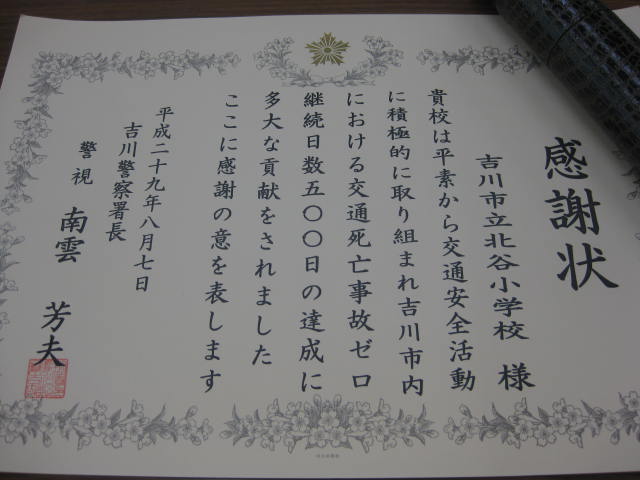 感謝状
吉川市立北谷小学校 様
貴校は平素から交通安全活動
に積極的に取り組まれ吉川市内
における交通死亡事故ゼロ
継続日数五〇〇日の達成に
多大な貢献をされました
ここに感謝の意を表します
平成二十九年八月七日
吉川警察署長
警視 南雲 芳夫